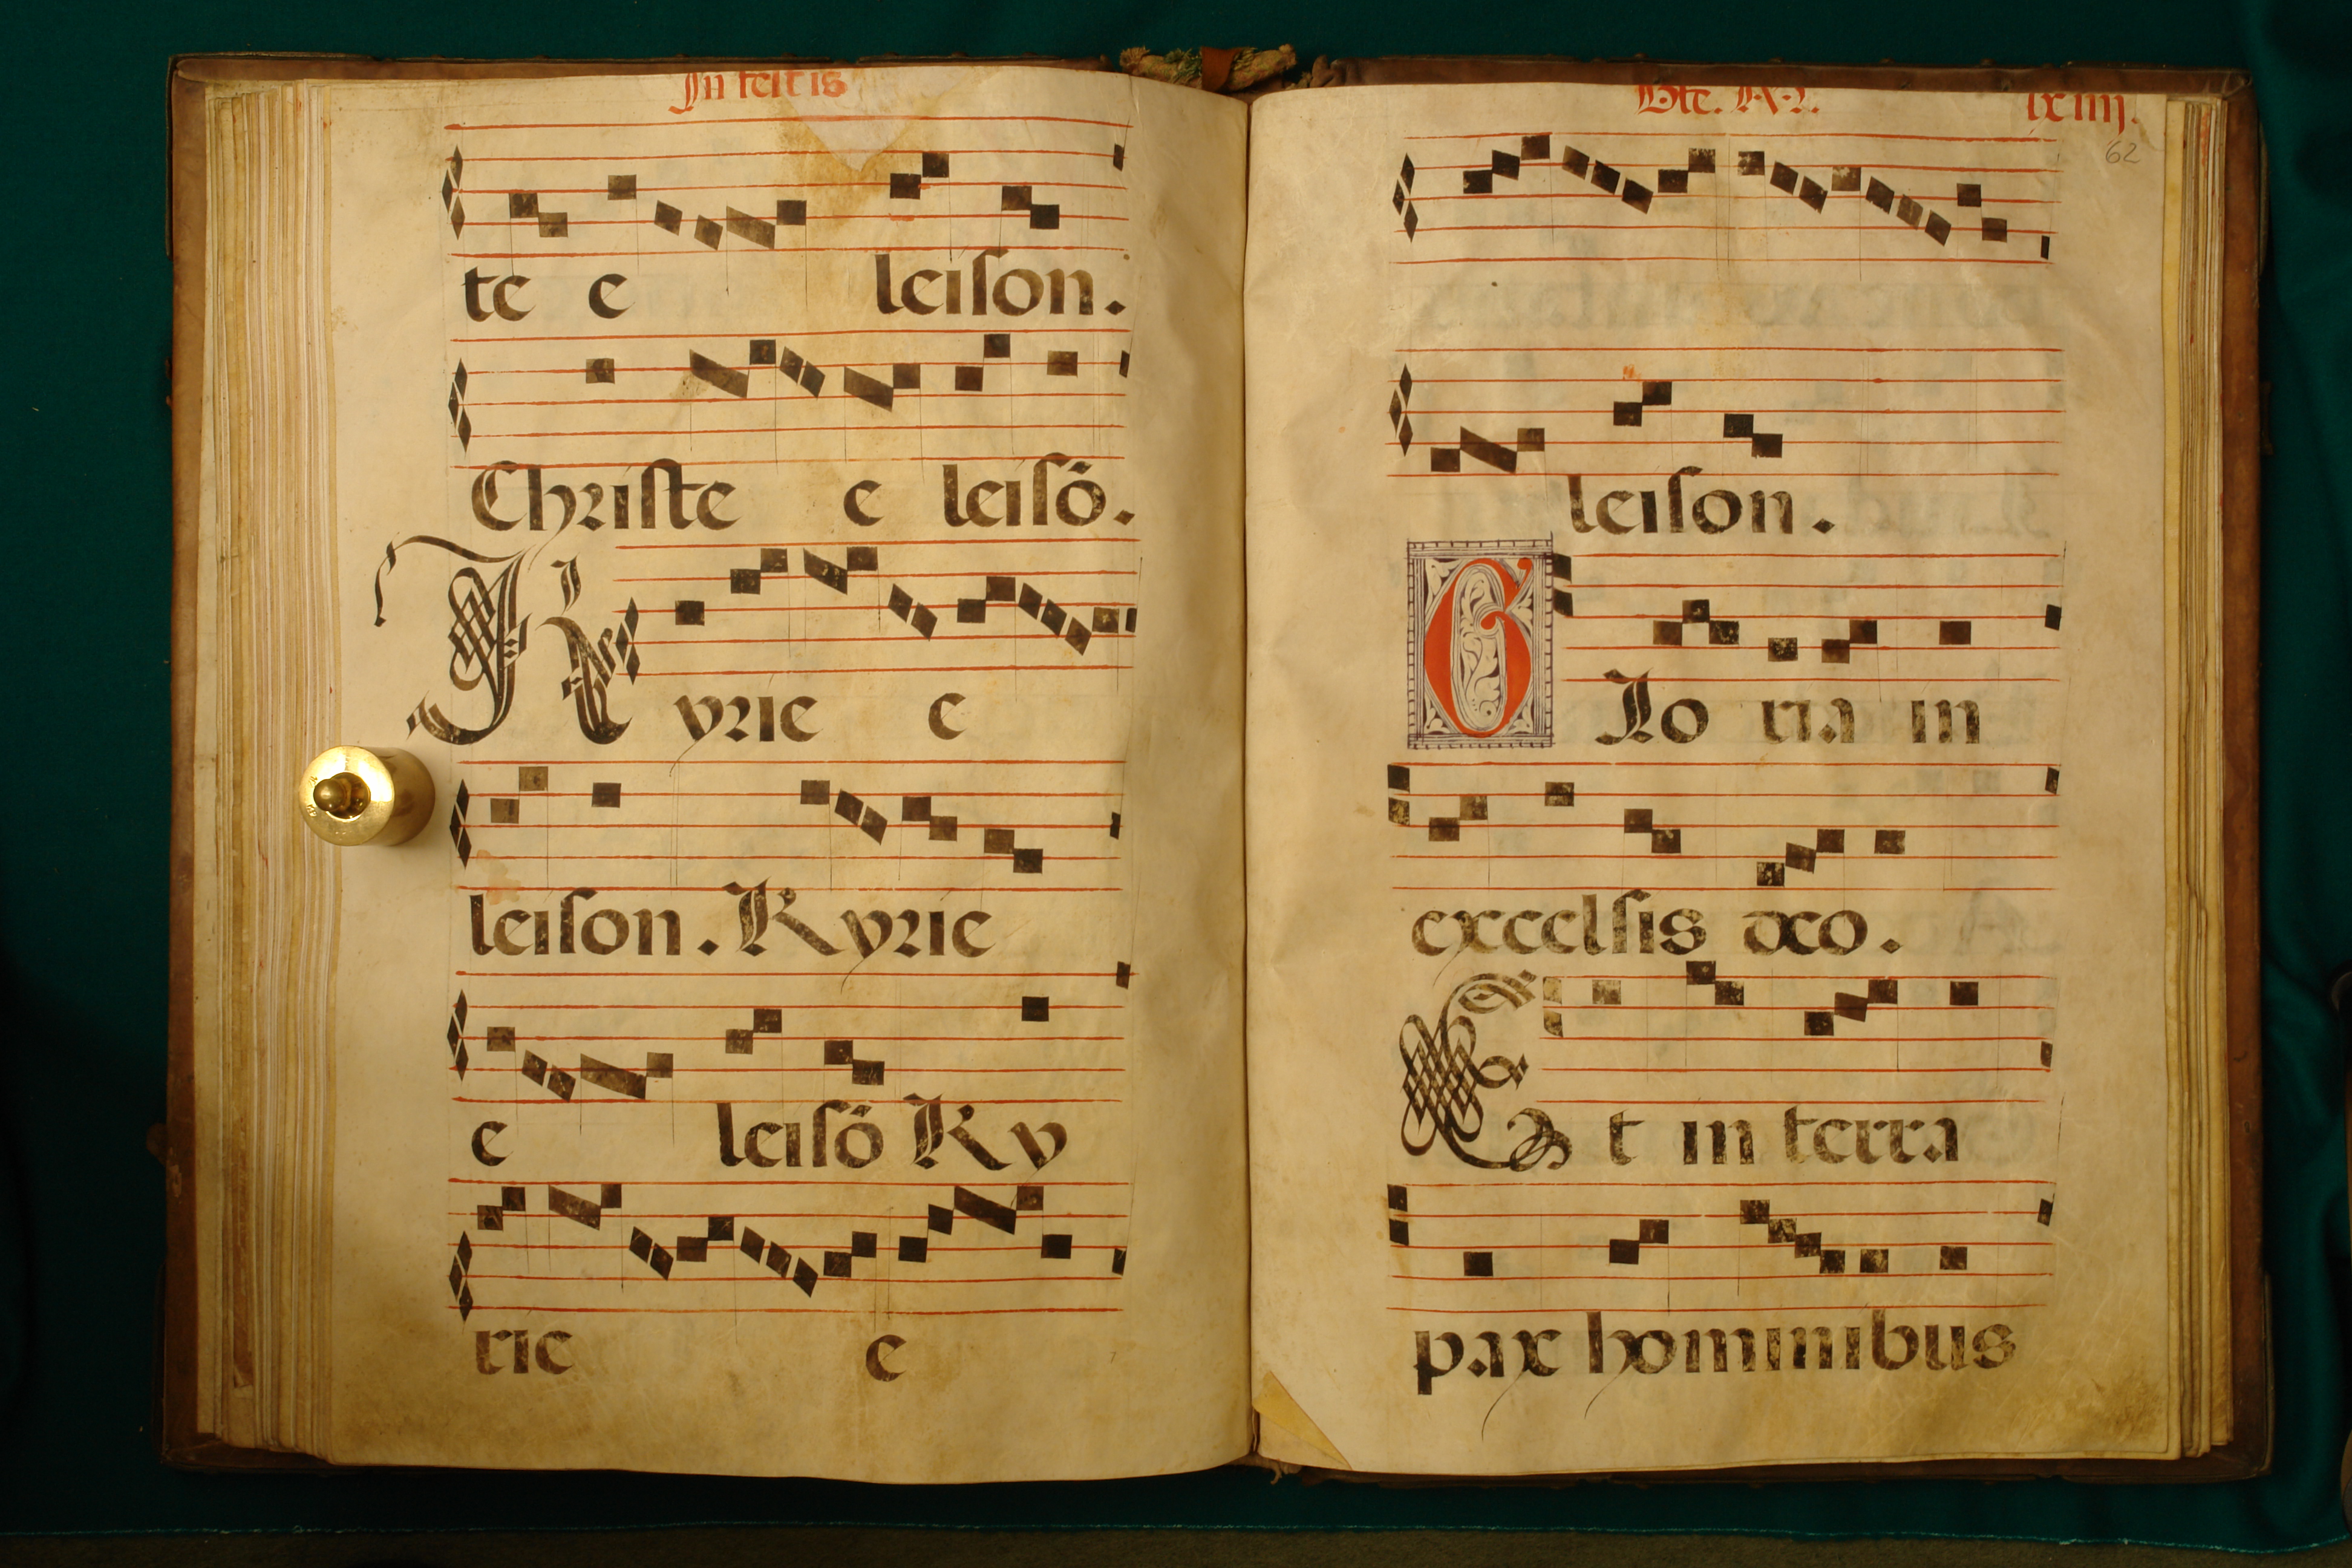 In festis
te e leiſon.
Chriſte e leiſō.
Kyrie e
leiſon. Kyrie
e leiſō Ky
rie e
lxiiij.
62
leiſon.
Glo ria in
excelſis deo.
Et in terra
pax hominibus